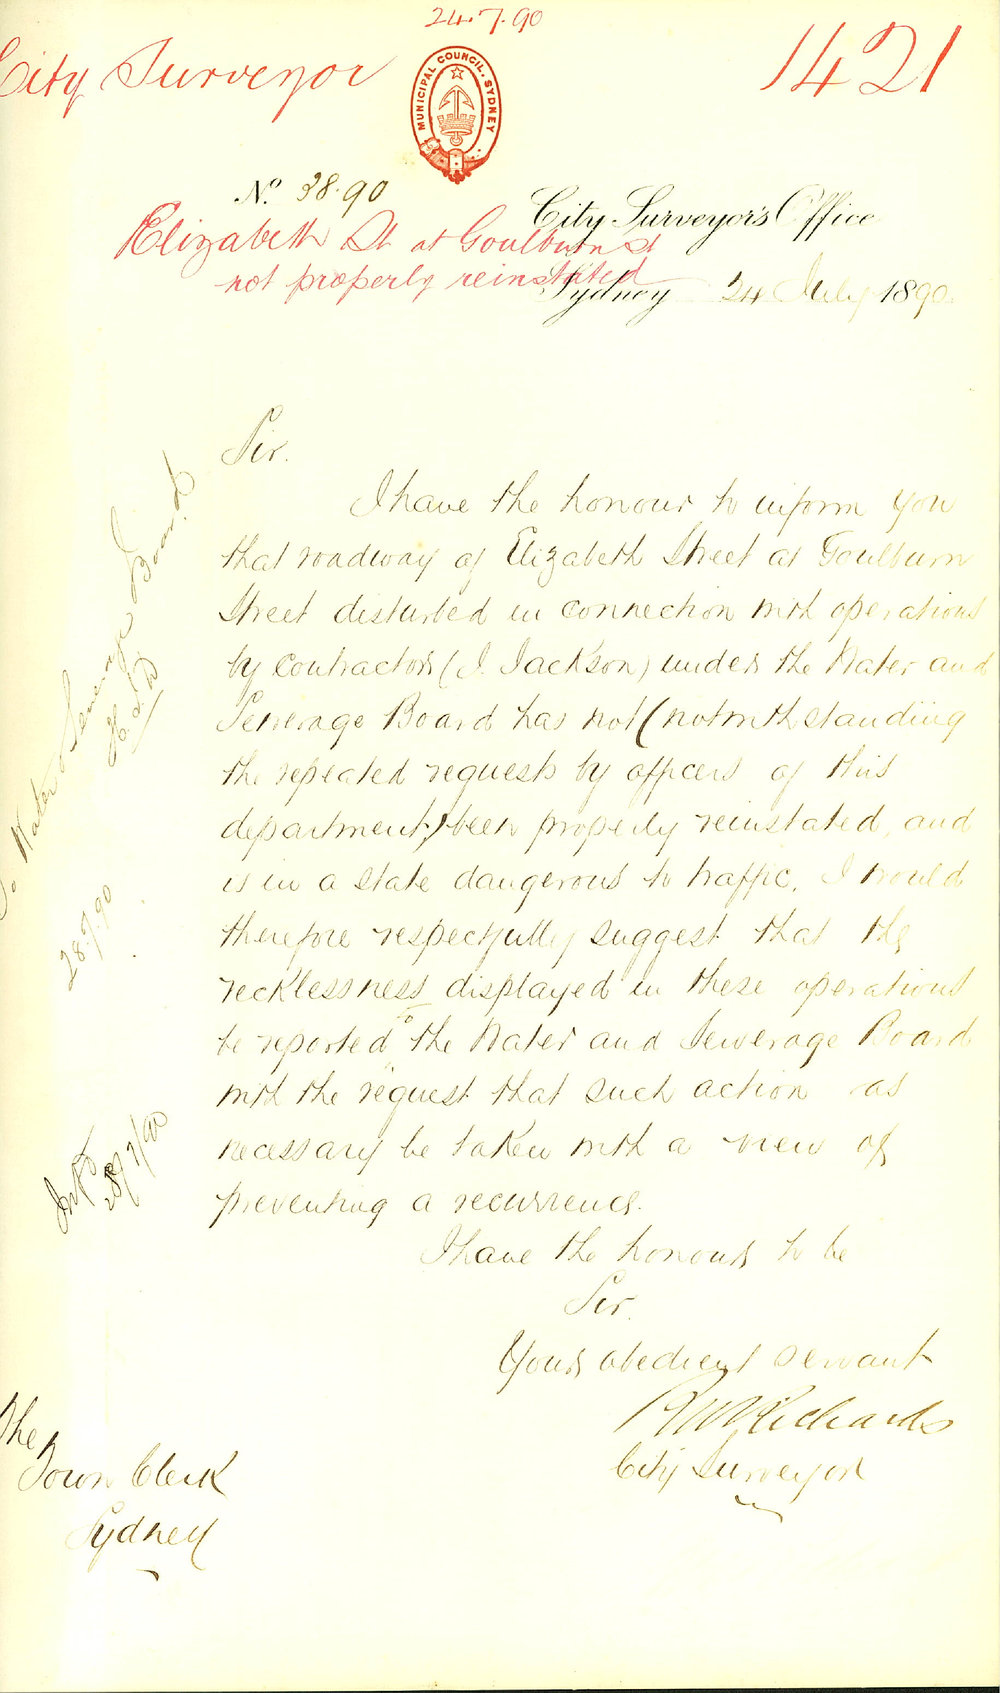 24.7.90
City Surveyor
1421
MUNICIPAL COUNCIL. SYDNEY
No. 38.90
City Surveyor's Office
Elizabeth St at Goulburn St
not properly reinstated
Sydney 24 July 1890.
Sir.
I have the honour to inform you
that roadway of Elizabeth Street at Goulburn
Street disturbed in connection with operations
by contractors (J. Jackson) under the Water and
Sewerage Board has not (notwithstanding
the repeated requests by officers of this
department) been properly reinstated, and
is in a state dangerous to traffic. I would
therefore respectfully suggest that the
recklessness displayed in these operations
be reported to the Water and Sewerage Board
with the request that such action as
necessary be taken with a view of
preventing a recurrence.
I have the honour to be
Sir.
Your obedient servant
RW Richards
City Surveyor
The
Town Clerk
Sydney
To Water & Sewerage Board
28.7.90
28/7/90